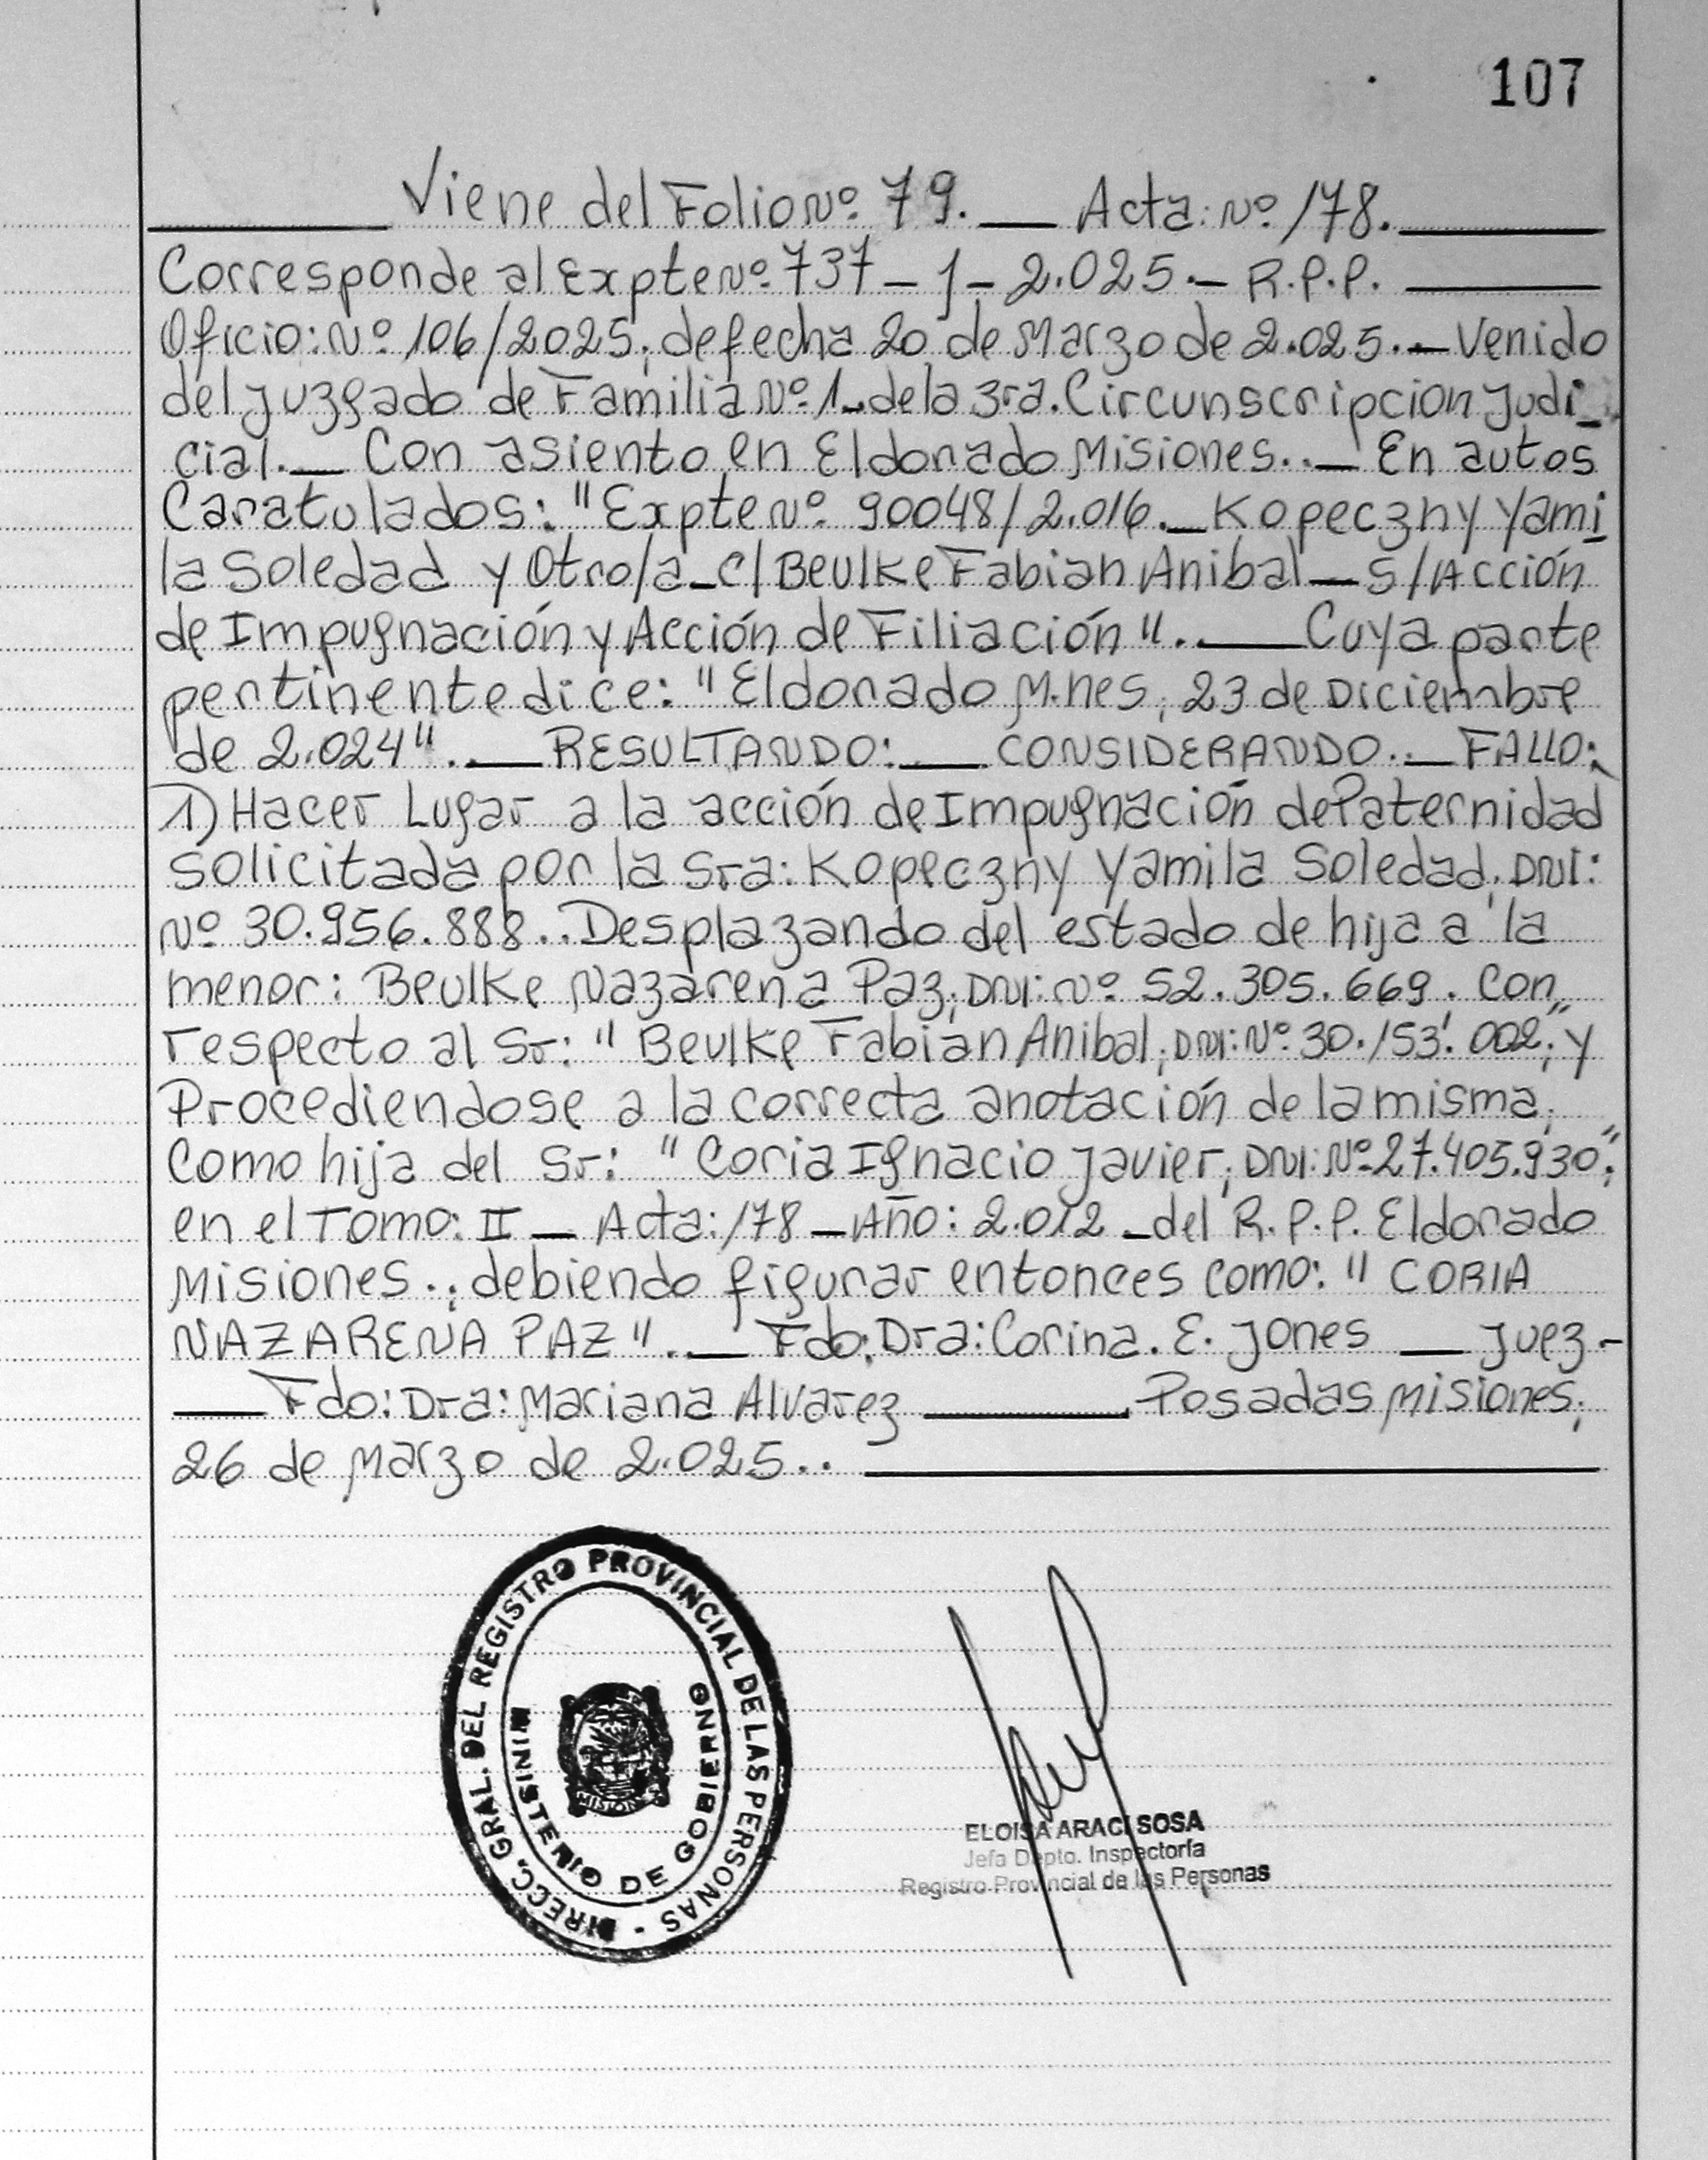 107
Viene del Folio Nº 79. — Acta: Nº 178.
Corresponde al Expte Nº 737 - J - 2.025. - R.P.P.
Oficio: Nº 106/2025, de fecha 20 de Marzo de 2.025. — Venido
del Juzgado de Familia Nº 1 - de la 3ra. Circunscripcion Judi-
cial. — Con asiento en Eldorado Misiones.. — En autos
Caratulados: "Expte Nº 90048/2.016. — Kopeczny Yami
la Soledad y Otro/a - C/ Beulke Fabian Anibal — S/Acción
de Impugnación y Acción de Filiación". — Cuya parte
pertinente dice: "Eldorado M.nes, 23 de Diciembre
de 2.024". — RESULTANDO: — CONSIDERANDO.. — FALLO:
1) Hacer Lugar a la acción de Impugnación de Paternidad
solicitada por la Sra: Kopeczny Yamila Soledad, DNI:
Nº 30.956.888.. Desplazando del estado de hija a la
menor: Beulke Nazarena Paz, DNI: Nº 52.305.669. Con
respecto al Sr: "Beulke Fabián Anibal, DNI: Nº 30.153.002", y
Procediendose a la correcta anotación de la misma,
Como hija del Sr: "Coria Ignacio Javier, DNI: Nº 27.405.930",
en el Tomo: II — Acta: 178 — Año: 2.012 - del R.P.P. Eldorado
Misiones.., debiendo figurar entonces como: "CORIA
NAZARENA PAZ". — Fdo: Dra: Corina. E. Jones — Juez.-
— Fdo: Dra: Mariana Alvarez — Posadas Misiones,
26 de Marzo de 2.025..
DIRECC. GRAL. DEL REGISTRO PROVINCIAL DE LAS PERSONAS -
MINISTERIO DE GOBIERNO
MISIONES
ELOISA ARACI SOSA
Jefa Depto. Inspectoría
Registro Provincial de las Personas